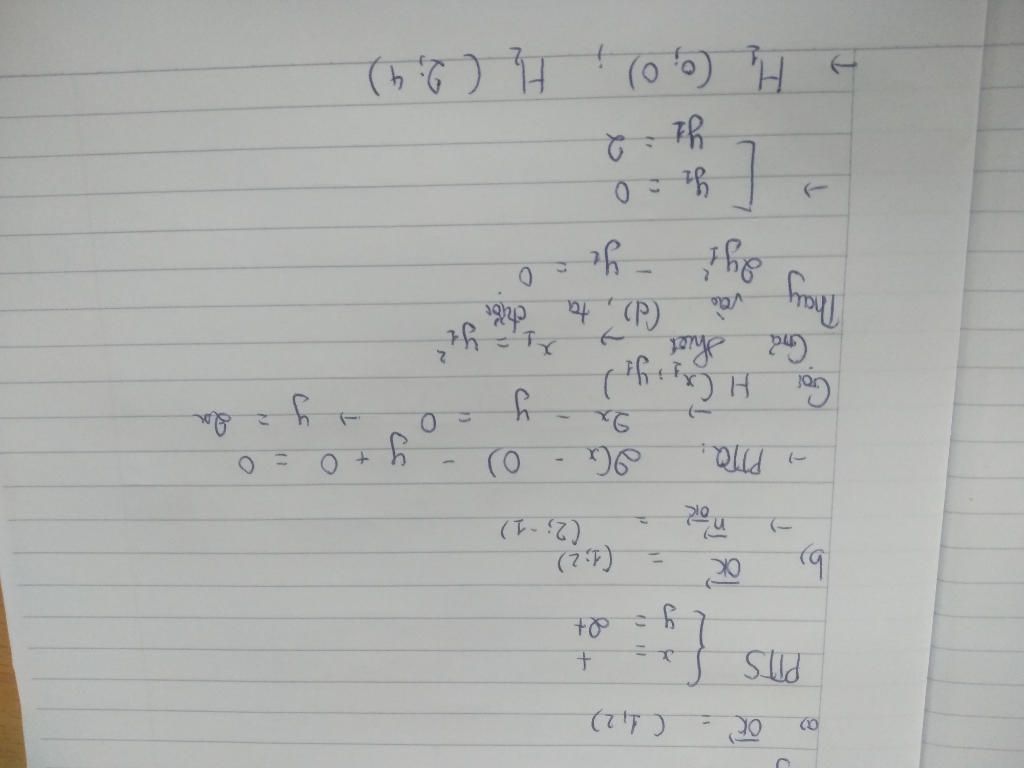 a) OK = (1; 2)
PTTS { x = t
y = 2t
b) OK = (1; 2)
→ n OK = (2; -1)
→ PTTQ: 2(x - 0) - y + 0 = 0
→ 2x - y = 0 → y = 2x
Gọi H (x1; y1)
Giả thiết → x1 = y1²
Thay vào (d), ta được:
2y1² - y1 = 0
→ [ y1 = 0
y1 = 2
→ H1 (0; 0) ; H2 (2; 4)